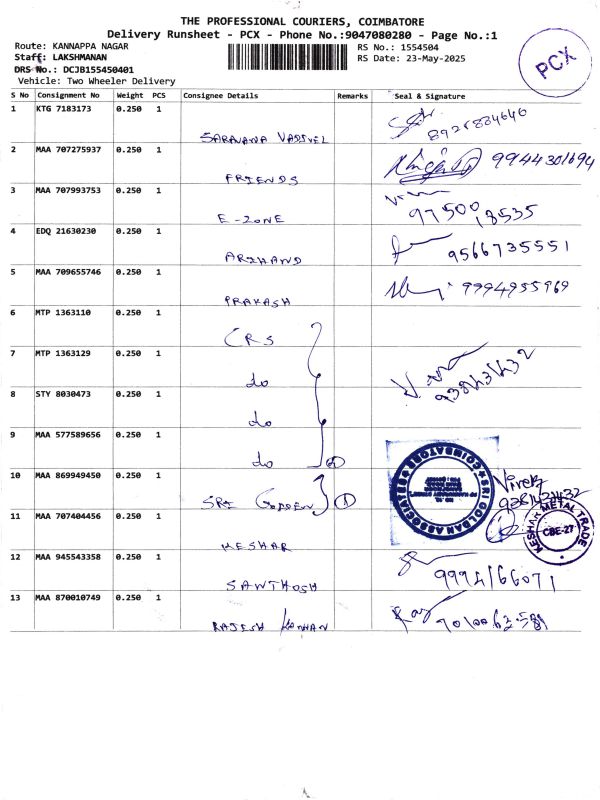 THE PROFESSIONAL COURIERS, COIMBATORE
Delivery Runsheet - PCX - Phone No.:9047080280 - Page No.:1
Route: KANNAPPA NAGAR RS No.: 1554504
Staff: LAKSHMANAN RS Date: 23-May-2025
DRS No.: DCJB155450401
Vehicle: Two Wheeler Delivery
PCX
S No Consignment No Weight PCS Consignee Details Remarks Seal & Signature
1 KTG 7183173 0.250 1
SARAVANA VADIVEL 8921884646
2 MAA 707275937 0.250 1
FRIENDS 9944301694
3 MAA 707993753 0.250 1
E-ZONE 97500 18535
4 EDQ 21630230 0.250 1
ARIHAND 9566735551
5 MAA 709655746 0.250 1
PRAKASH 9994955969
6 MTP 1363110 0.250 1
CRS
7 MTP 1363129 0.250 1
do
8 STY 8030473 0.250 1
do
9 MAA 577589656 0.250 1
do
10 MAA 869949450 0.250 1
SRI GOLDEN 1
Vivek
9381431432
SRI GOLDAN ASSOCIATES
COIMBATORE
11 MAA 707404456 0.250 1
KESHAR
KESHAR METAL TRADE
CBE-27
12 MAA 945543358 0.250 1
SANTHOSH 9994166071
13 MAA 870010749 0.250 1
RAJESH KANNAN